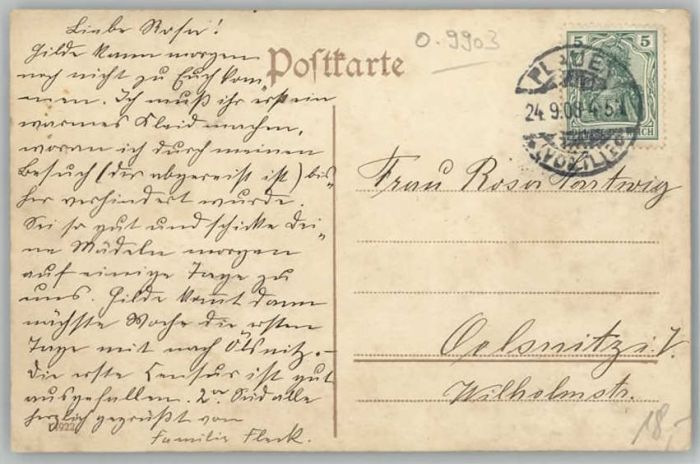 Liebe Rosa!
Hilde kann morgen
noch nicht zu Euch kom
men. Ich muß ihr erst ein
warmes Kleid machen,
woran ich durch meinen
Besuch (der abgereist ist) bis-
her verhindert wurde.
Sei so gut und schicke Dei-
ne Mädeln morgen
auf einige Tage zu
uns. Hilde kommt dann
nächste Woche die ersten
Tage mit nach Ölsnitz.-
Die erste Censur ist gut
ausgefallen. 2a. Seid alle
herzlich gegrüßt von
Familie Fleck.
Postkarte
0.9903
5 5
24.9.08 4-5
REICH
(VOGTL)
Frau Rosa Hartwig
Oelsnitz i. V.
Wilhelmstr.
18,-